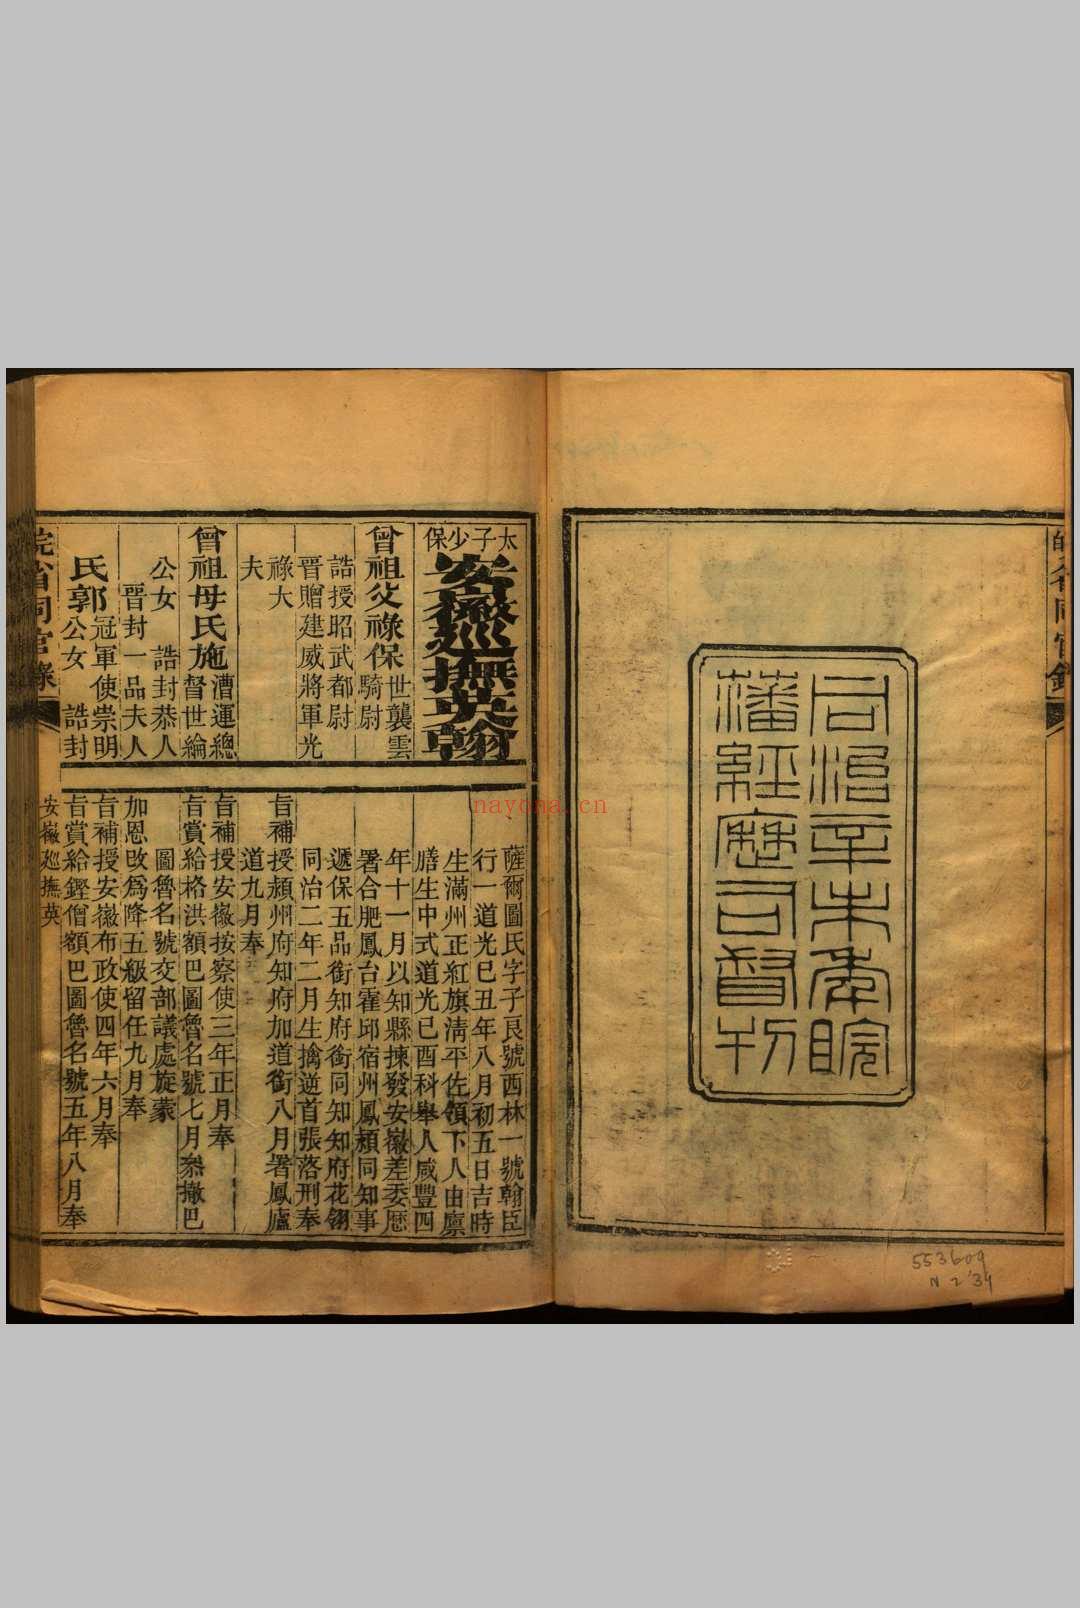 同治辛未年皖
藩經歷司督刊
皖省同官錄
太子少保
安徽巡撫英翰
曾祖父祿保世襲雲騎尉
誥授昭武都尉
晉贈建威將軍光
祿大
夫
曾祖母氏施漕運總督世綸
公女 誥封恭人
晉封一品夫人
氏郭冠軍使崇明公女 誥封
薩爾圖氏字子良號西林一號翰臣
行一道光己丑年八月初五日吉時
生滿州正紅旗清平佐領下人由廩
膳生中式道光己酉科舉人咸豐四
年十一月以知縣揀發安徽差委歷
署合肥鳳台霍邱宿州鳳潁同知事
遞保五品銜知府銜同知知府花翎
同治二年二月生擒逆首張落刑奉
旨補授潁州府知府加道銜八月署鳳廬
道九月奉
旨補授安徽按察使三年正月奉
旨賞給格洪額巴圖魯名號七月叅撤巴
圖魯名號交部議處旋蒙
加恩改爲降五級留任九月奉
旨補授安徽布政使四年六月奉
旨賞給鏗僧額巴圖魯名號五年八月奉
皖省同官錄
安徽廵撫英
553609
N 2 '34
nayona.cn